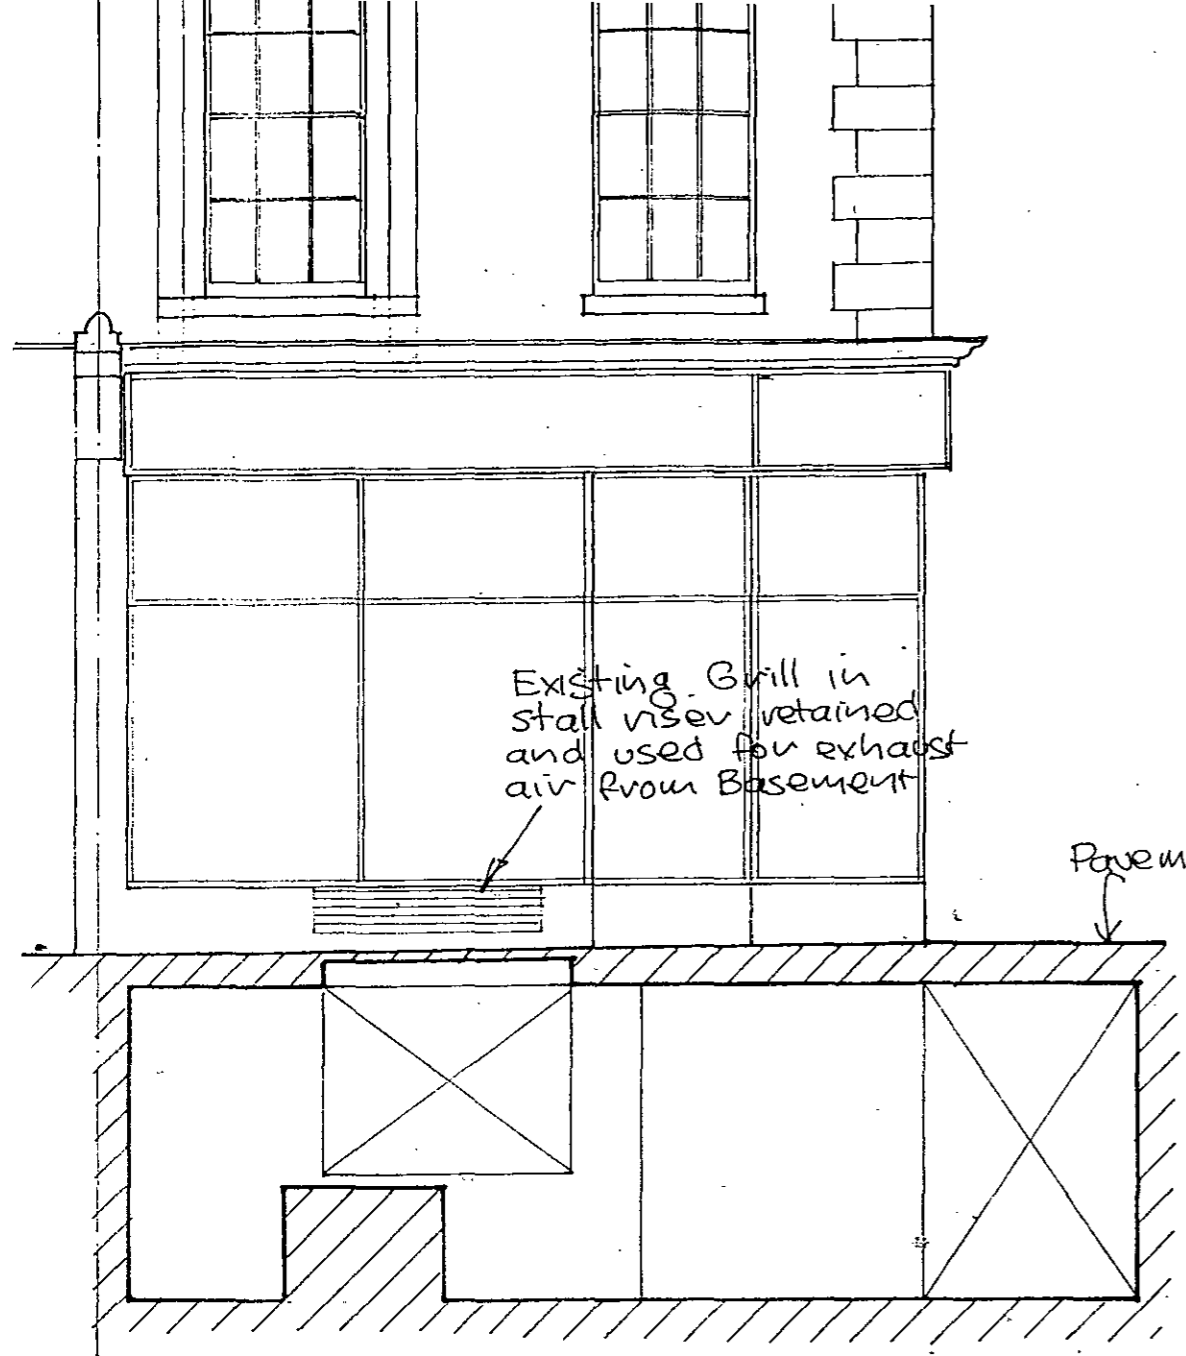 Existing Grill in
stall riser retained
and used for exhaust
air from Basement
Pavem